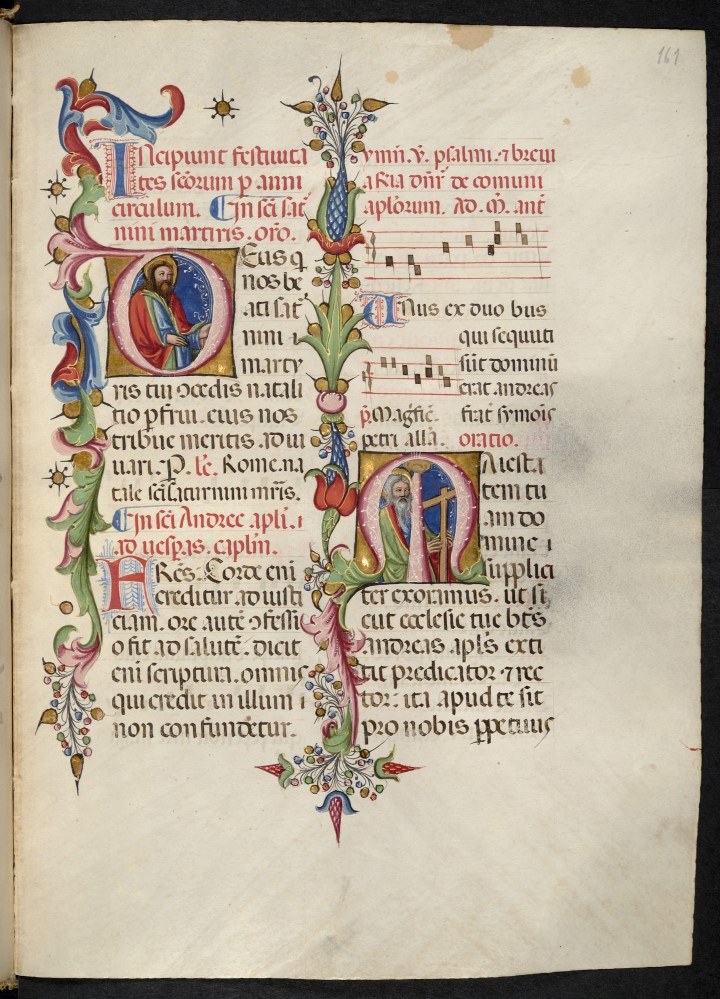 161
Incipiunt festiuita
tes scõrum p anni
circulum. In sci sat̃
nini martiris. orõ.
Deus q
nos be
ati sat̃
nini
marty
ris tui ɔcedis natali
tio pfrui. eius nos
tribue meritis adiu
uari. P. le. Rome na
tale sci saturnini mr̃is.
In sci Andree apli. i
ad uesp̃as. caplm.
Fr̃es. Corde eni
creditur ad iusti
ciam. ore autẽ ɔfessi
o fit ad salutẽ. dicit
eni scriptura. omnis
qui credit in illum
non confundetur.
ymn. v. psalmi. ⁊ breui
aria dnr̃ de comuni
aplorum. Ad. M̃. ant̃
Unus ex duo bus
qui sequuti
sũt dominũ
erat andreas
p̃. Magfic̃. frat̃ symõis
petri alla. oratio.
Maiesta
tem tu
am do
mine
supplici
ter exoramus. ut si
cut ecclesie tue bt̃s
andreas apl̃s exti
tit predicator ⁊ rec
tor: ita apud te sit
pro nobis ppetuus